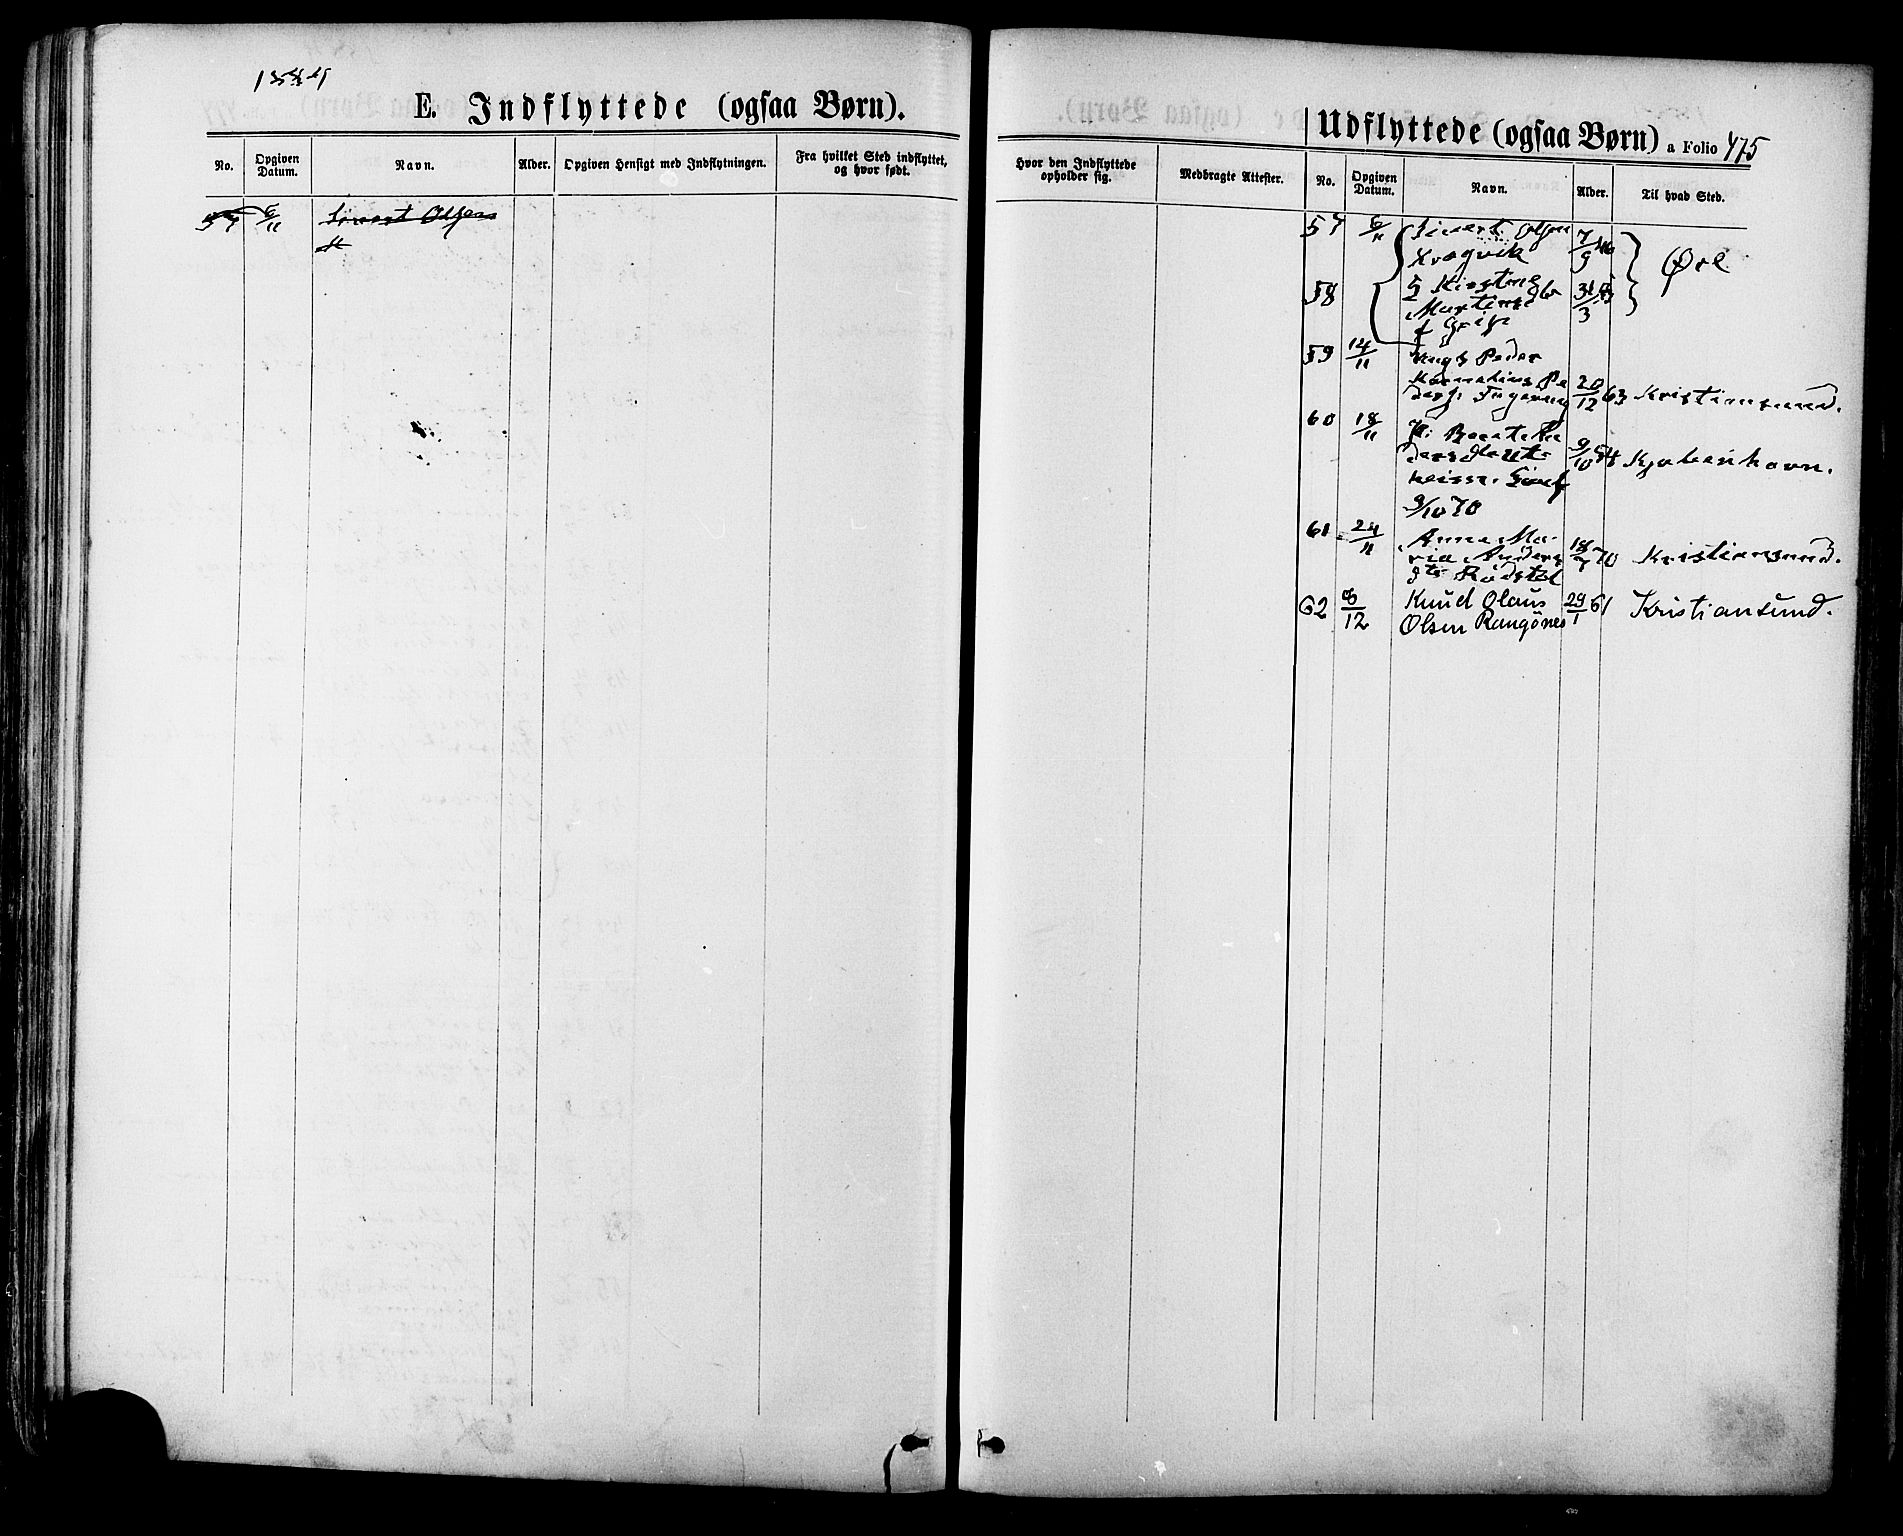 1884
E. Indflyttede (ogsaa Børn).
No.
Opgiven Datum.
Navn.
Alder.
Opgiven Hensigt med Indflytningen.
Fra hvilket Sted indflyttet, og hvor født.
57 6/11 Sivert Olsen
Udflyttede (ogsaa Børn) a Folio 475
Hvor den Indflyttede opholder sig.
Medbragte Attester.
No.
Opgiven Datum.
Navn.
Alder.
Til hvad Sted.
57 6/11 Sivert Olsen 7/9
Øre
58 Kirstine 31/3
Martinsd
f Grip
59 14/11 Ungk Peder
Kornelius Pe
ders. 20/12 63 Kristiansund.
60 18/11 Pi. Beret Pe
dersdatt 9/10 54 Kjøbenhavn.
9/10 70
61 24/11 Anne Ma-
ria Anders 18/7 70 Kristiansund.
dtr Rødstøl
62 8/12 Knud Olaus 29/1 61 Kristiansund.
Olsen Rangönes